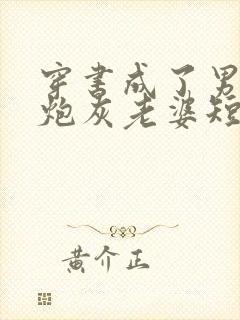 穿书成了男
炮灰老婆短
黄介正